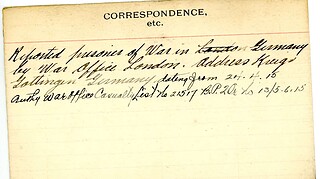 CORRESPONDENCE,
etc.
Reported prisoner of War in Germany
by War Office London. Address Kings
Gottingin Germany dating from 24.4.15
Authy War Office Casualty List No 21517 B.P.2
13/5.6.15